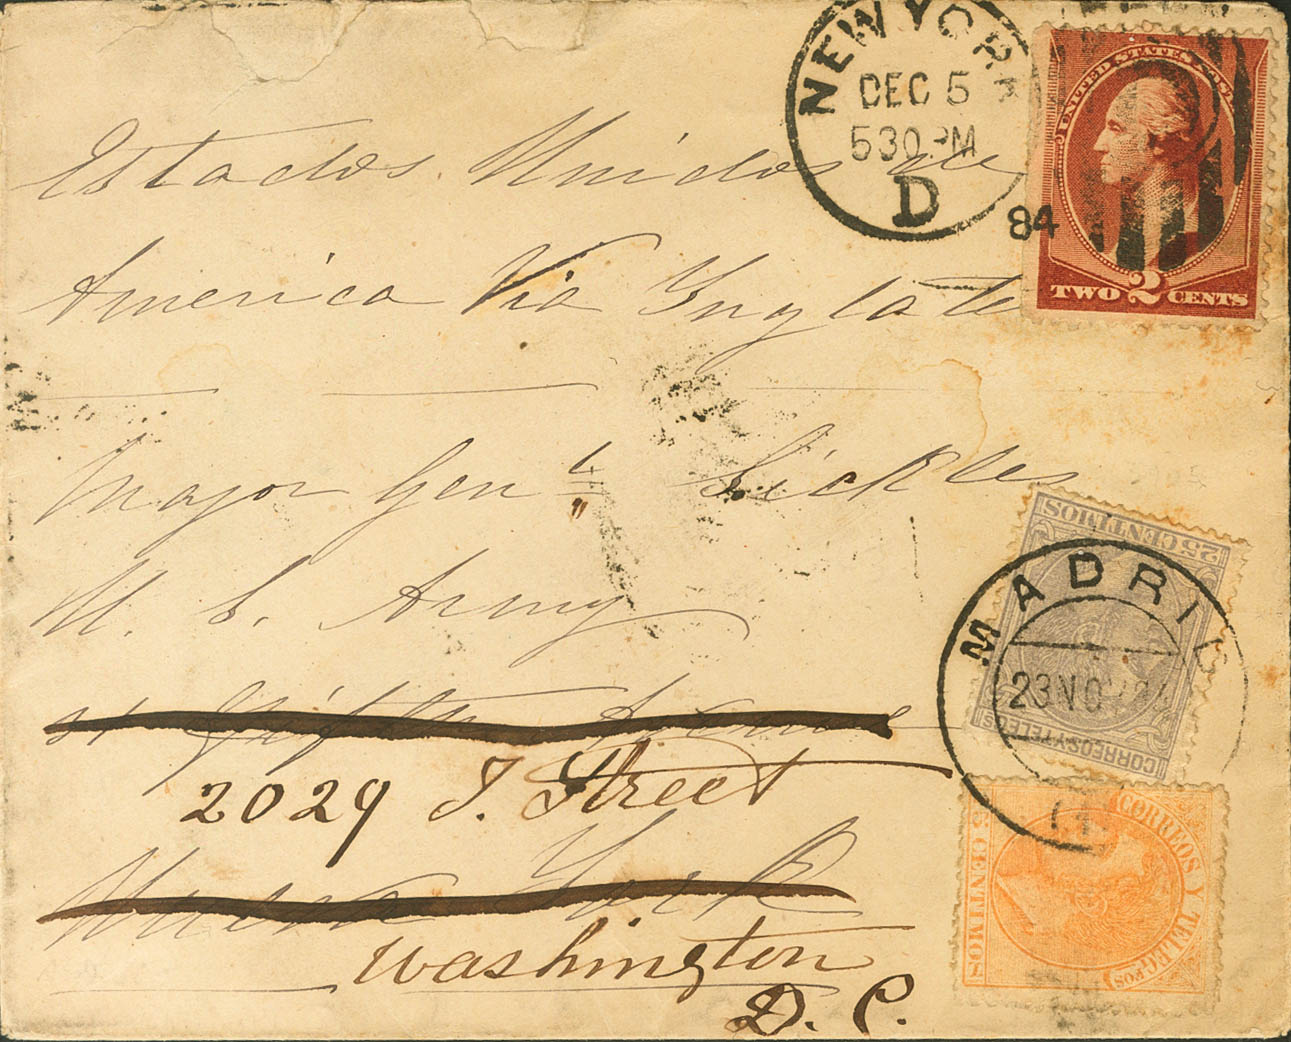 NEW YORK
DEC 5
530 PM
D
84
UNITED STATES
TWO 2 CENTS
Estados Unidos de
America Via Inglate
Major Genl Sickles
U. S. Army
Fifth Avenue
2029 I. Street
Nueva York
Washington
D. C.
25 CENTIMOS
CORREOS Y TELEGS
MADRID
23 NOV 84
CORREOS Y TELEG.FOS
CENTIMOS